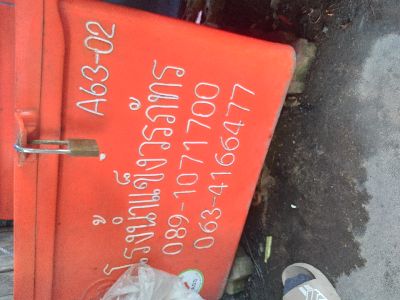 A63-02
โรงน้ำแข็งวรภัทร
089-1071700
063-4166477